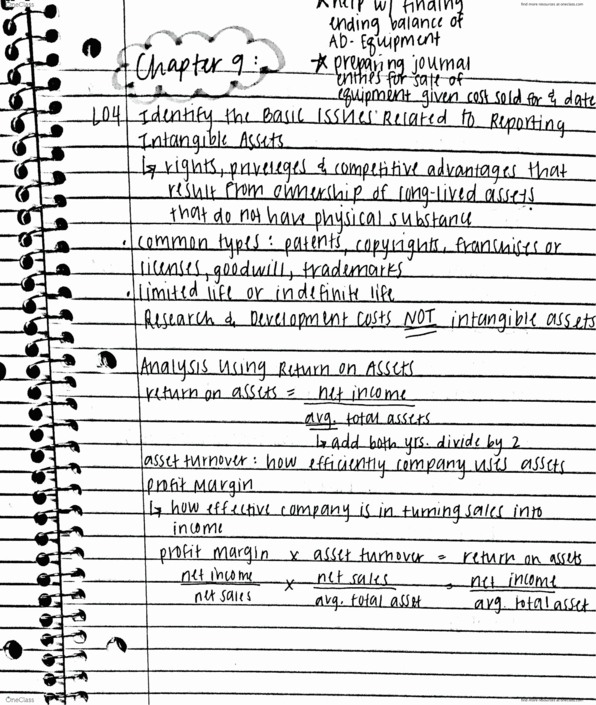 OneClass
find more resources at oneclass.com
* help w/ finding
ending balance of
AD-Equipment
* preparing journal
enthes for sale of
equipment given cost sold for & date
Chapter 9:
LO4 Identify the Basic Issues Related to Reporting
Intangible Assets
↳ rights, priveleges & competitive advantages that
result from ownership of long-lived assets
that do not have physical substance
• common types: patents, copyrights, franchises or
licenses, goodwill, trademarks
• limited life or indefinite life
Research & Development costs NOT intangible assets
Analysis Using Return on Assets
return on assets = net income
avg. total assets
↳ add both yrs. divide by 2
asset turnover: how efficiently company uses assets
profit margin
↳ how effective company is in turning sales into
income
profit margin x asset turnover = return on assets
net income x net sales = net income
net sales avg. total asset avg. total asset
OneClass
find more resources at oneclass.com